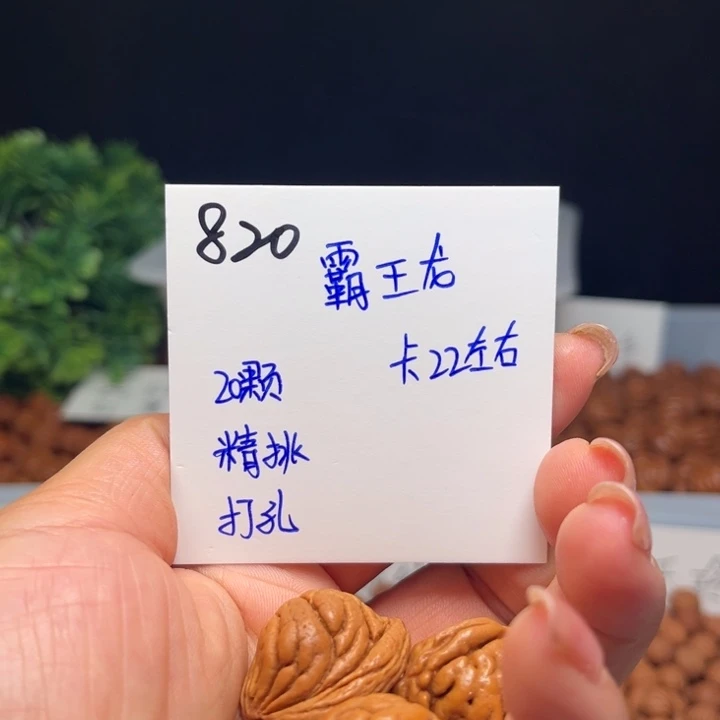 820
霸王龙
卡22左右
20颗
精挑
打孔